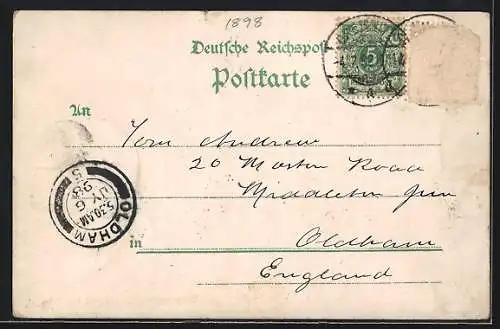 1898
Deutsche Reichspost
Postkarte
5
An
Tom Andrew
20 Moston Road
Middleton Jun
in Oldham
England
OLDHAM
5.30 AM
JY 6
98